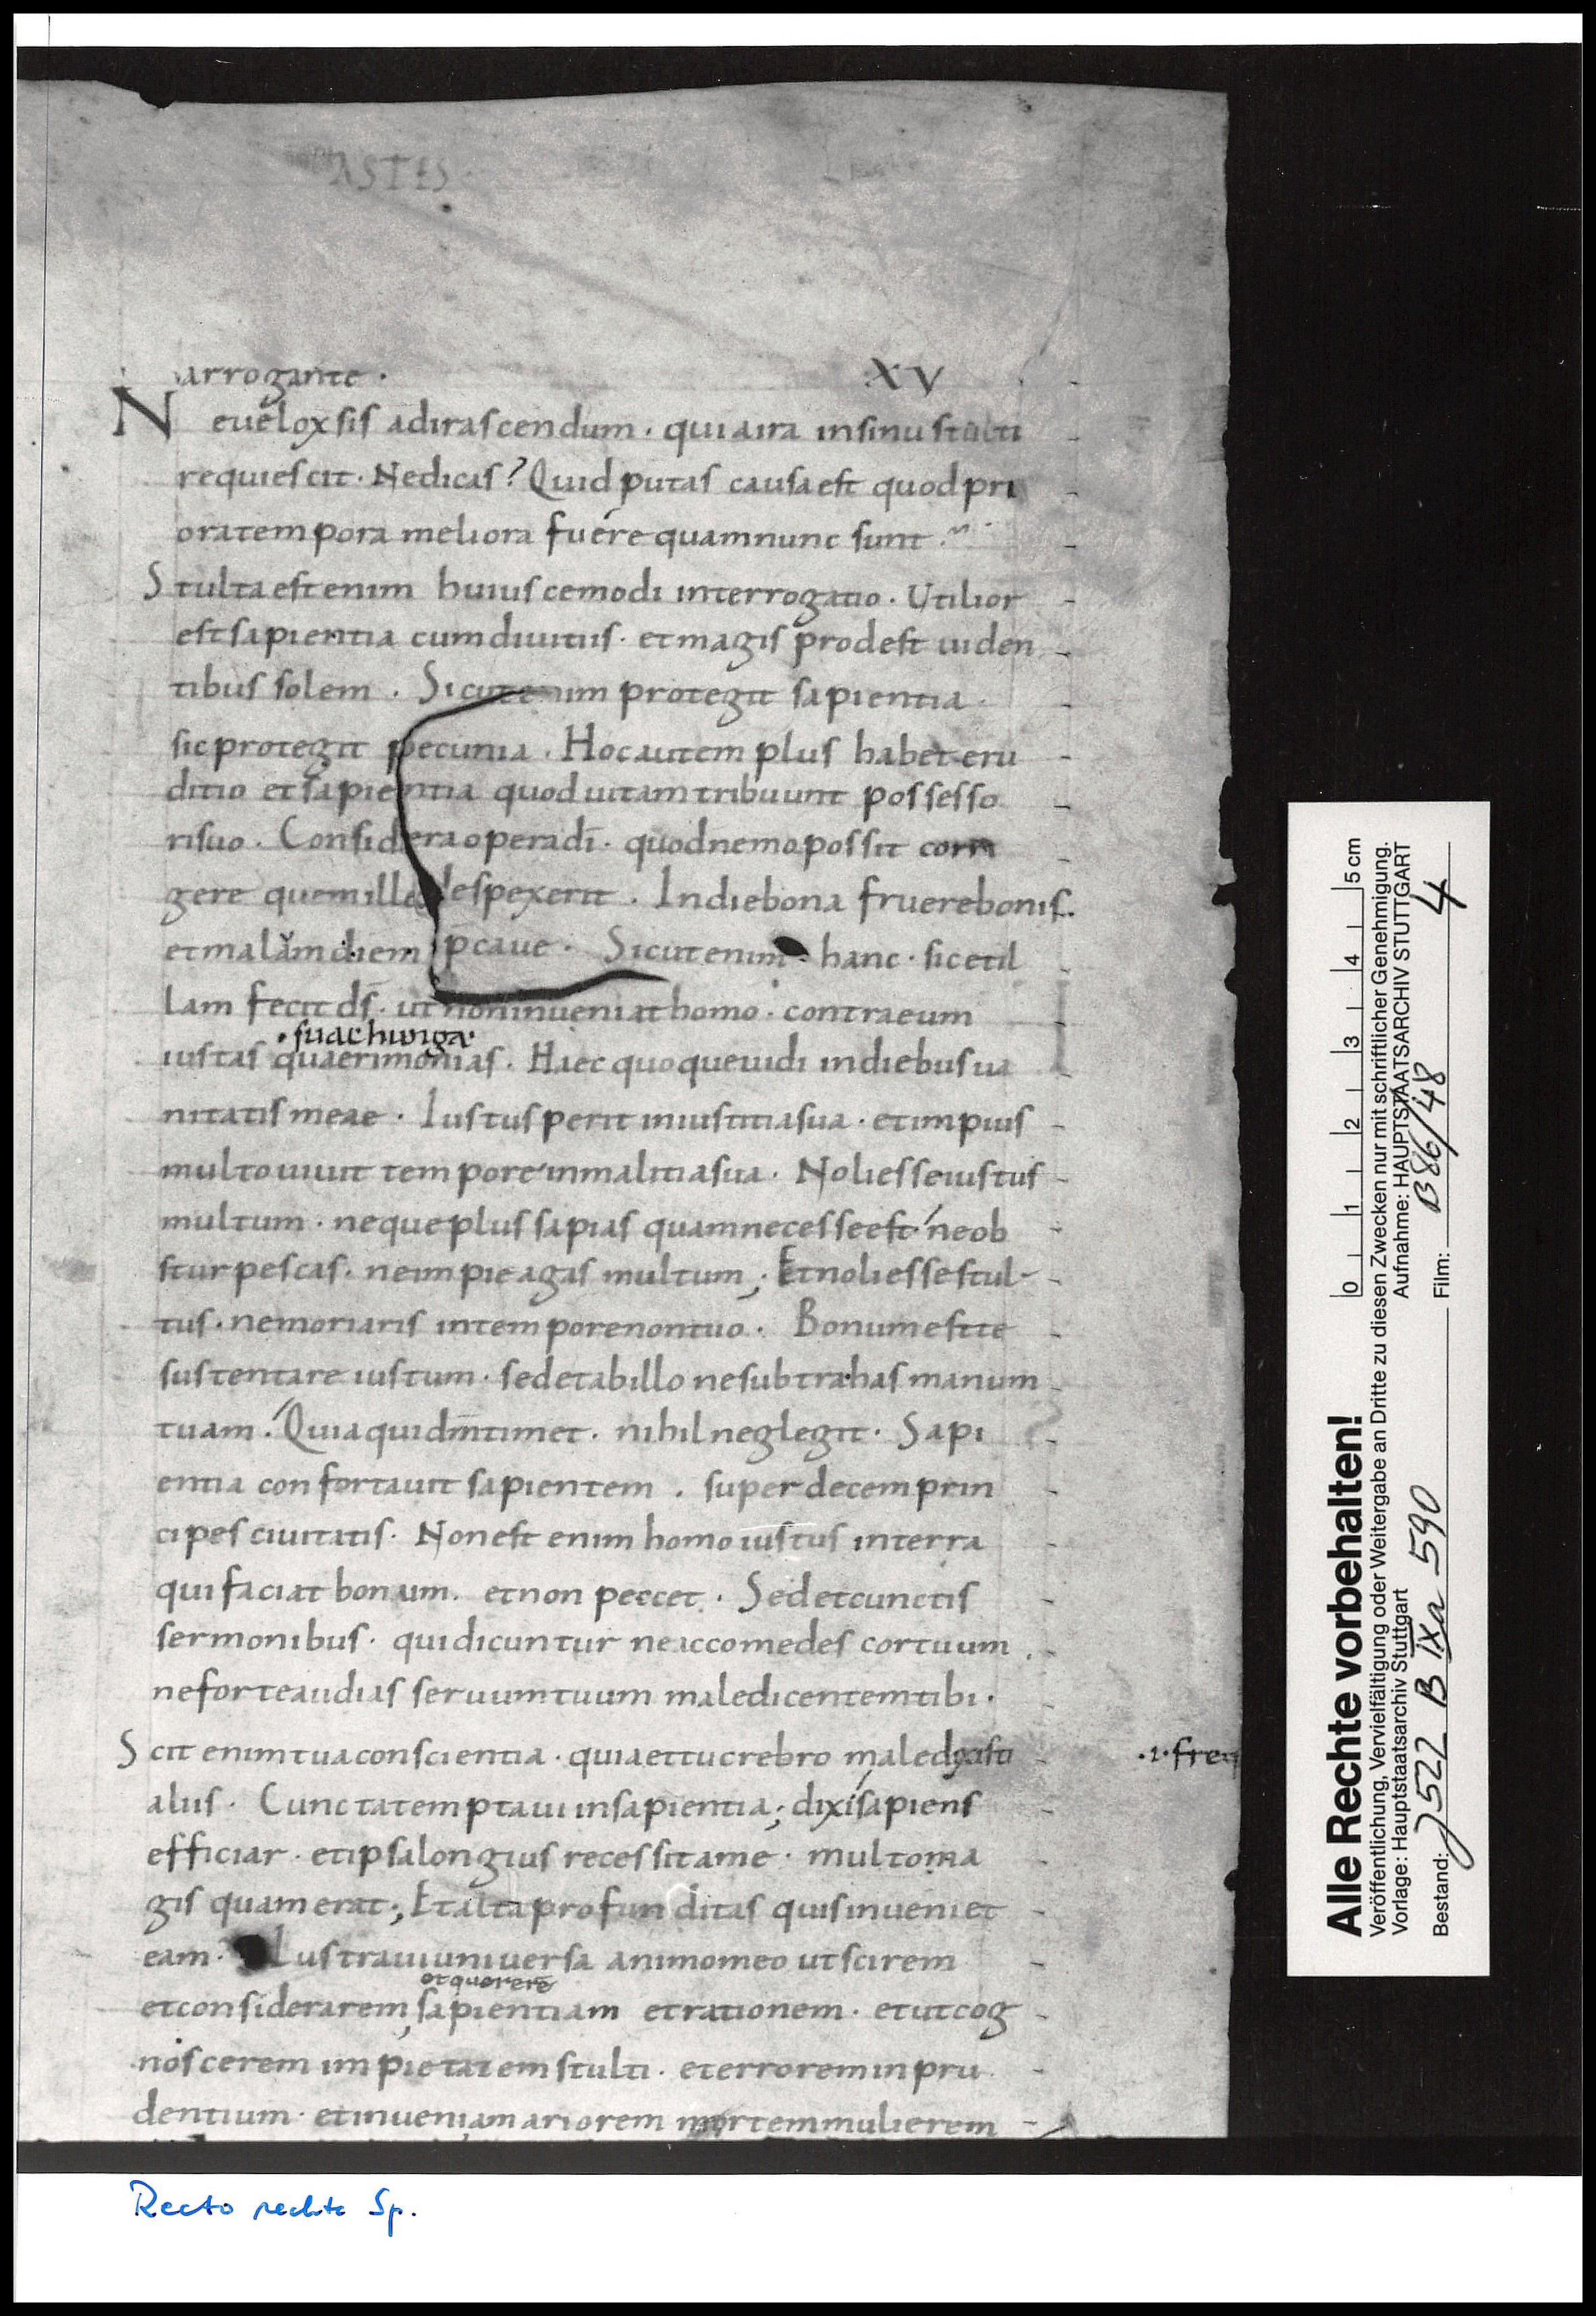 ASTES
arrogante · XV
Ne uelox sis ad irascendum · quia ira in sinu stulti
requiescit · Ne dicas? Quid putas causa est quod pri
ora tempora meliora fuére quam nunc sunt ·
Stulta est enim huiuscemodi interrogatio · Utilior
est sapientia cum diuitiis · et magis prodest uiden
tibus solem · Sicut enim protegit sapientia ·
sic protegit pecunia · Hoc autem plus habet eru
ditio et sapientia quod uitam tribuunt possesso
ri suo · Considera opera dī · quod nemo possit corri
gere quem ille despexerit · In die bona fruere bonis.
et malam diem p̄caue · Sicut enim hanc · sic et il
lam fecit ds̄ · ut non inueniat homo · contra eum
· suachunga ·
iustas quaerimonias · Haec quoque uidi in diebus ua
nitatis meae · Iustus perit in iustitia sua · et impius
multo uiuit tempore in malitia sua · Noli esse iustus
multum · neque plus sapias quam necesse est · ne ob
sturpescas · ne impie agas multum ; Et noli esse stul-
tus · ne moriaris in tempore non tuo · Bonum est te
sustentare iustum · sed et ab illo ne subtrahas manum
tuam · Quia qui dm̄ timet · nihil neglegit · Sapi
entia confortauit sapientem · super decem prin
cipes ciuitatis · Non est enim homo iustus in terra
qui faciat bonum · et non peccet · Sed et cunctis
sermonibus · qui dicuntur ne accomedes cor tuum ·
ne forte audias seruum tuum maledicentem tibi ·
Scit enim tua conscientia · quia et tu crebro maledixisti
· i · freq
aliis · Cuncta temptaui in sapientia ; dixi sapiens
efficiar · et ipsa longius recessit a me · multo ma
gis quam erat ; Et alta profunditas quis inueniet
eam · Lustraui uniuersa animo meo ut scirem
et quererē
et considerarem, sapientiam et rationem · et ut cog
noscerem impietatem stulti · et errorem inpru
dentium · et inueni amariorem mortem mulierem
Recto rechte Sp.
Alle Rechte vorbehalten!
Veröffentlichung, Vervielfältigung oder Weitergabe an Dritte zu diesen Zwecken nur mit schriftlicher Genehmigung.
Vorlage: Hauptstaatsarchiv Stuttgart Aufnahme: HAUPTSTAATSARCHIV STUTTGART
Bestand: J522 B IXa 590 Film: B 86/48 4
0 1 2 3 4 5 cm